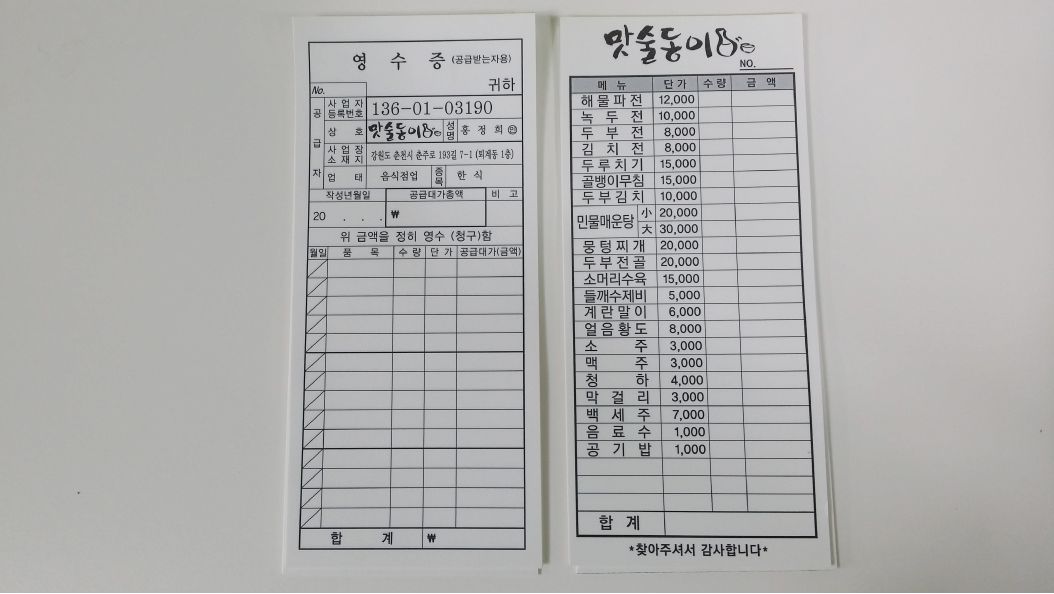 영 수 증 (공급받는자용)
No. 귀하
공급자
사업자등록번호 136-01-03190
상 호 맛술동이 성명 홍정희 ㊞
사업장소재지 강원도 춘천시 춘주로 193길 7-1 (퇴계동 1층)
업 태 음식점업 종목 한 식
작성년월일 공급대가총액 비 고
20 . . . ₩
위 금액을 정히 영수 (청구)함
월일 품 목 수 량 단 가 공급대가(금액)
합 계 ₩
맛술동이
NO.
메 뉴 단 가 수 량 금 액
해물파전 12,000
녹 두 전 10,000
두 부 전 8,000
김 치 전 8,000
두루치기 15,000
골뱅이무침 15,000
두부김치 10,000
민물매운탕 小 20,000
大 30,000
뭉텅찌개 20,000
두부전골 20,000
소머리수육 15,000
들깨수제비 5,000
계란말이 6,000
얼음황도 8,000
소 주 3,000
맥 주 3,000
청 하 4,000
막 걸 리 3,000
백 세 주 7,000
음 료 수 1,000
공 기 밥 1,000
합 계
*찾아주셔서 감사합니다*